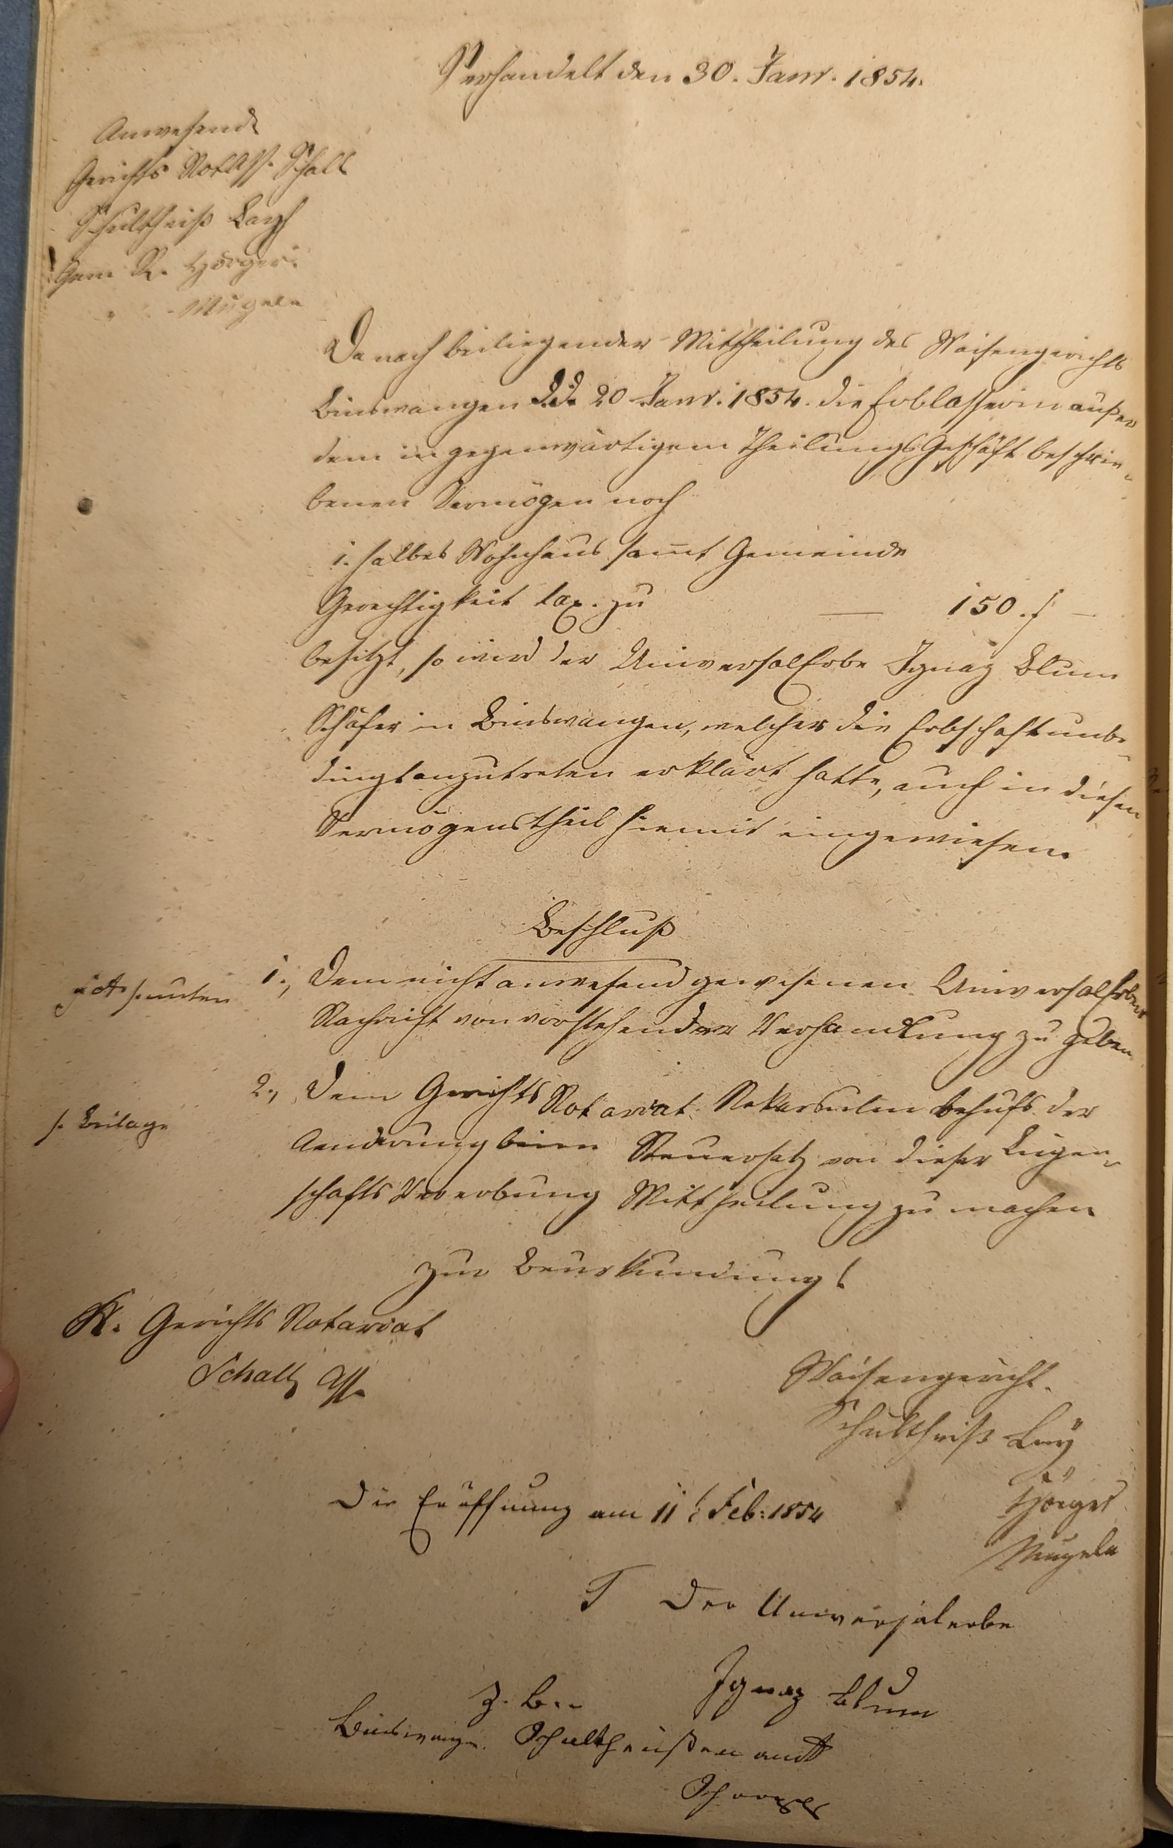 Verhandelt den 30. Janr. 1854.
Anwesend
Gerichts Not. Ass. Schall
Schultheiß Lay
Gem. R. Hörger
" - Mugele
Da nach beiliegender Mittheilung des Waisengerichts
Binswangen d. d. 20 Janr. 1854. die Erblasserin außer
dem in gegenwärtigem Theilungs Geschäft beschrie-
benen Vermögen noch
1. halbes Wohnhaus samt Gemeinde
Gerechtigkeit tax. zu — 150. f —
besitzt, so wird der Universal Erbe Ignaz Blum
Schäfer in Binswangen, welcher die Erbschaft unbe-
dingt anzutreten erklärt hatte, auch in diesen
Vermögenstheil hiemit eingewiesen.
Beschluß
1., Dem nicht anwesend gewesenen Universal Erben
s. unten
Nachricht von vorstehender Verhandlung zu geben
2., Dem Gerichts Notariat Nekarsulm behufs der
s. Beilage
Aenderung beim Steuersatz von dieser Liegen-
schafts Vererbung Mittheilung zu machen
Zur Beurkundung
K. Gerichts Notariat
Schall Ass.
Waisengericht.
Schultheiß Lay
Hörger
Mugele
Die Eröffnung am 11 t Feb: 1854
T Der Universalerbe
Ignaz Blum
Z. B.
Binswangen Schultheißenamt